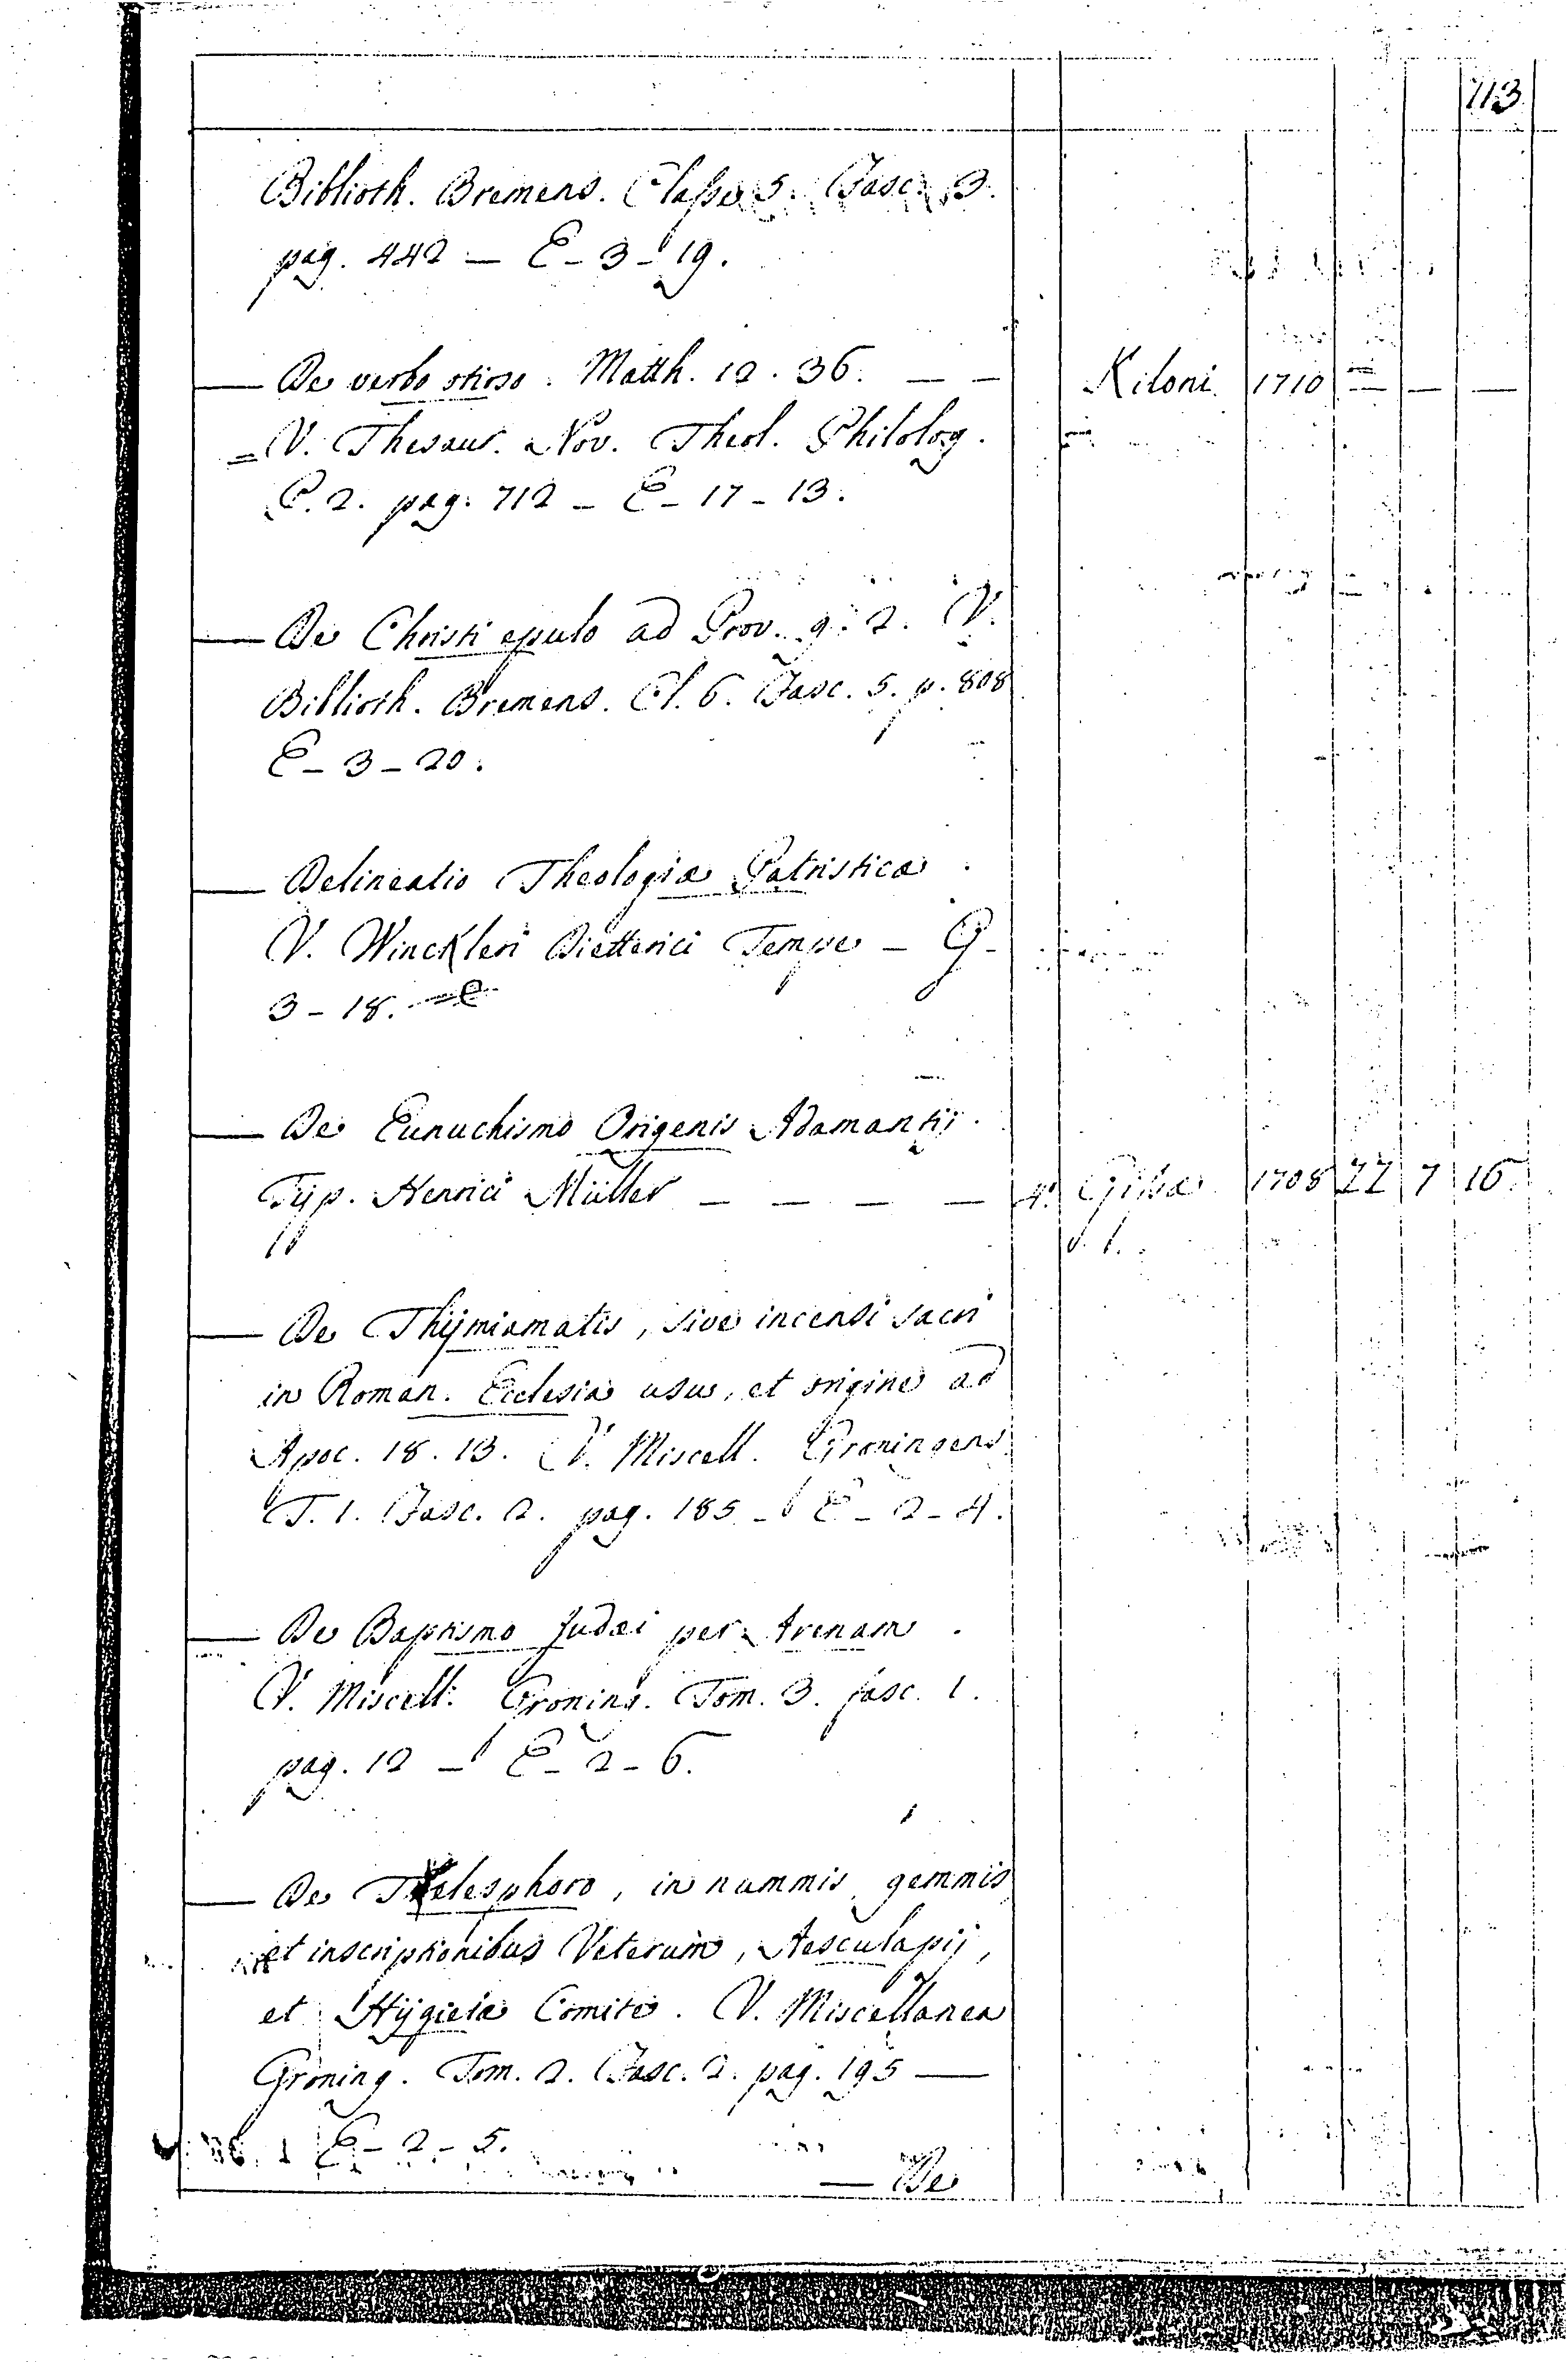 713
Biblioth. Bremens. Classe 5. Fasc. 3.
pag. 442 — E – 3 – 19.
— De verbo otioso. Matth. 12. 36. — — Kiloni 1710 — — —
V. Thesaur. Nov. Theol. Philolog.
P. 2. pag. 712 – E – 17 – 13.
— De Christi epulo ad Prov. 9. 2. V.
Biblioth. Bremens. Cl. 6. Fasc. 5. p. 808
E – 3 – 20.
— Delineatio Theologiæ Patristicæ.
V. Winckleri Dietterici Tempe – G –
3 – 18.
— De Eunuchismo Origenis Adamantij.
Typ. Henrici Müller — — — — 4. Gissæ 1708 ZZ 7 16.
— De Thÿmiamatis, sive incensi sacri
in Roman. Ecclesia usu, et origine ad
Apoc. 18. 13. V. Miscell. Groningens.
T. 1. Fasc. 2. pag. 185 – E – 2 – 4.
— De Baptismo Judæi per Arenam.
V. Miscell. Groning. Tom. 3. fasc. 1.
pag. 12 – E – 2 – 6.
— De Telesphoro, in nummis, gemmis
et inscriptionibus Veterum, Aesculapij,
et Hÿgieiæ Comite. V. Miscellanea
Groning. Tom. 2. Fasc. 2. pag. 195 —
E – 2 – 5.
— De